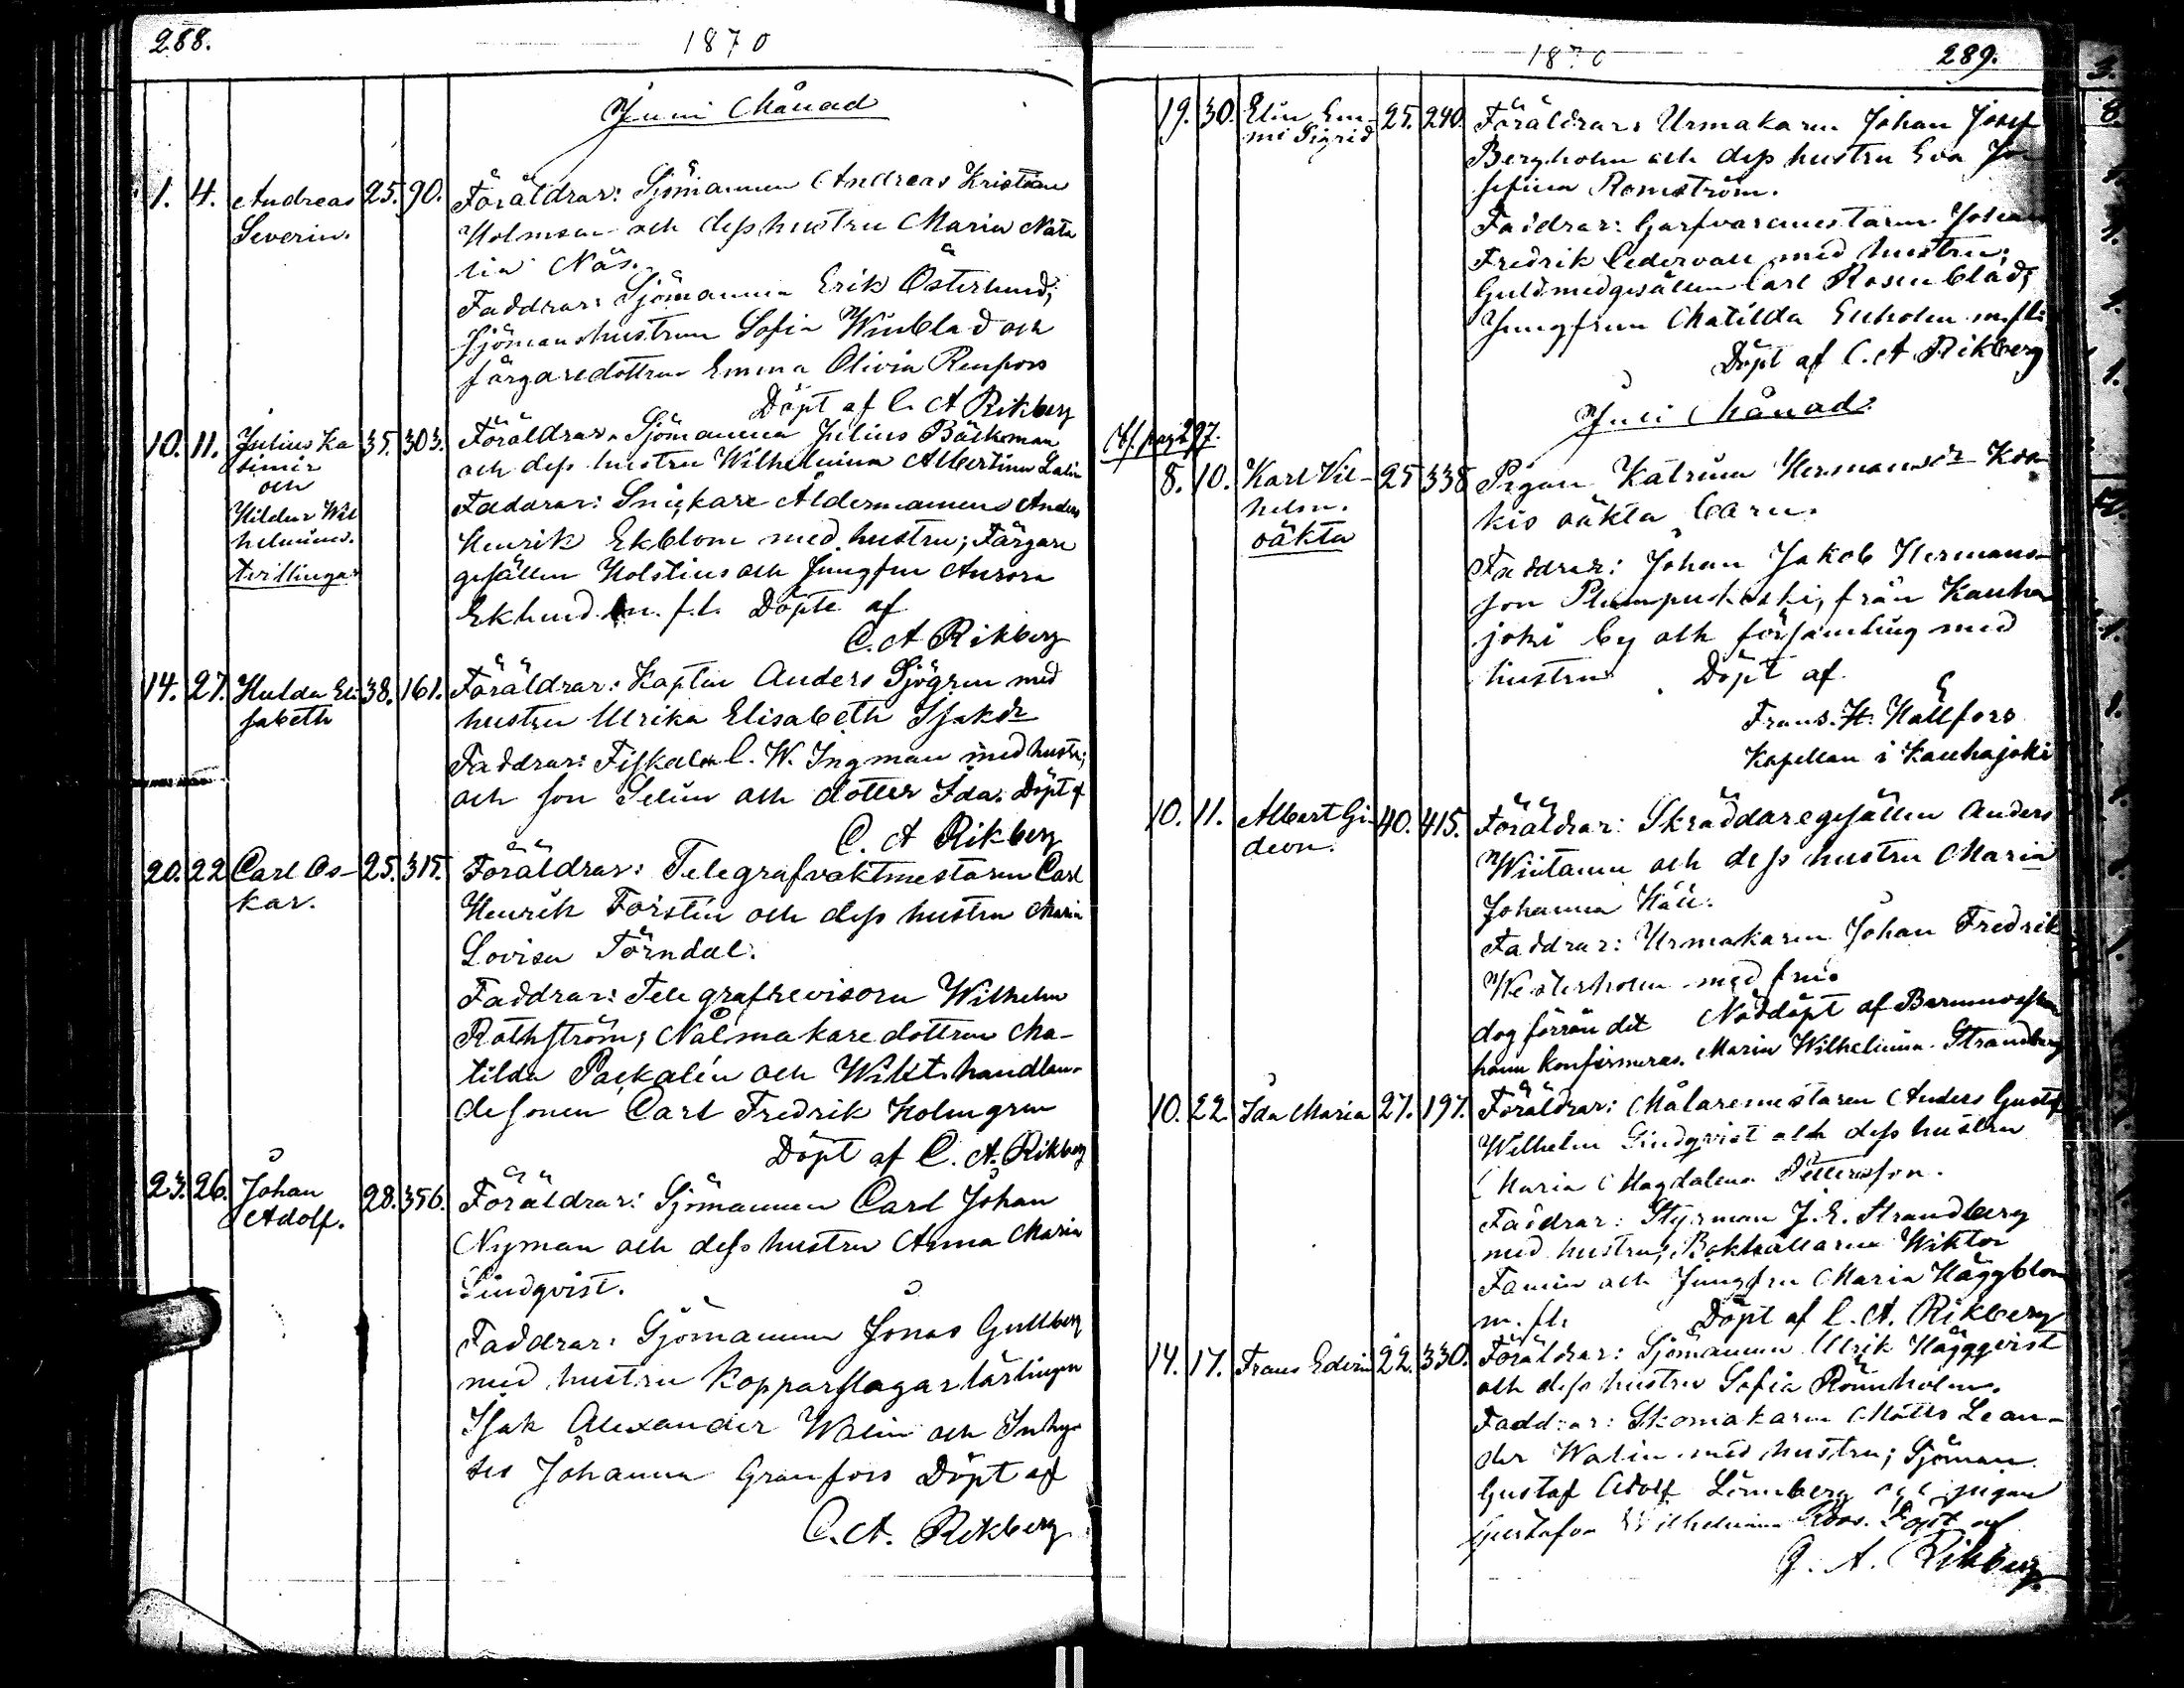 288.
1870
Juni Månad
1. 4. Andreas Severin. 25. 90. Föräldrar: Sjömannen Andreas Kristian
Holmsen och dess hustru Maria Nata
lia Näs.
Faddrar: Sjömannen Erik Österlund;
Sjömanshustrun Sofia Winblad och
färgaredottren Emma Olivia Renfors
Döpt af C. A Rikberg
10. 11. Julius Ka 35. 303. Föräldrar: Sjömannen Julius Bäckman
simir och dess hustru Wilhelmina Albertina Lalin
och Faddrar: Snickare Åldermannen Anders
Hildur Wil Henrik Ekblom med hustru; Färgare
helmina. gesällen Holstius och Jungfru Aurora
tvillingar Eklund m. fl. Döpte af
C. A Rikberg
14. 27. Hulda Eli 38. 161. Föräldrar: Kapten Anders Sjögren med
sabeth hustru Ulrika Elisabeth Isaksdr
Faddrar: Fiskalen C. W. Ingman med hustru;
och son Selim och dotter Ida. Döpt af
C. A Rikberg
20. 22 Carl Os- 25. 315. Föräldrar: Telegrafvaktmestaren Carl
kar. Henrik Forstén och dess hustru Maria
Lovisa Törndal.
Faddrar: Telegrafrevisorn Wilhelm
Rothström; Nålmakaredottren Ma-
tilda Packalén och Wikt. handlan-
desonen Carl Fredrik Holmgren
Döpt af C. A. Rikberg
23. 26. Johan 28. 356. Föräldrar: Sjömannen Carl Johan
Adolf. Nyman och dess hustru Anna Maria
Lindqvist.
Faddrar: Sjömannen Jonas Gullberg
med hustru Kopparslagarlärlingen
Isak Alexander Walin och Inhy-
ses Johanna Granfors Döpt af
C. A. Rikberg
1870
289.
19. 30. Elin Em- 25. 240. Föräldrar: Urmakaren Johan Josef
mi Sigrid Bergholm och dess hustru Eva Jo
sefina Romström.
Faddrar: Garfvaremestaren Johan
Fredrik Cedervall med hustru;
Guldsmedgesällen Carl Rosenblad;
Jungfrun Matilda Enholm m. fl.
Döpt af C. A Rikberg
Juli Månad.
Cf. pag 297.
8. 10. Karl Vil- 25 338 Pigan Katrina Hermansdr Kos
helm. kis oäkta barn.
oäkta Faddrar: Johan Jakob Hermans-
son Plumpukoski, från Kauha
joki by och församling med
hustru Döpt af
Frans. H. Hällfors
Kapellan i Kauhajoki
10. 11. Albert Gi- 40. 415. Föräldrar: Skräddaregesällen Anders
deon. Wiitanen och dess hustru Maria
Johanna Häll.
Faddrar: Urmakaren Johan Fredrik
Westerholm med fru.
dog förrän det Nöddöpt af Barnmorskan
hann konfirmeras. Maria Wilhelmina Strandberg
10. 22. Ida Maria 27. 197. Föräldrar: Målaremestaren Anders Gustaf
Wilhelm Lindqvist och dess hustru
Maria Magdalena Pettersson.
Faddrar: Styrman J. E. Strandberg
med hustru; Bokhållaren Wiktor
Famin och Jungfru Maria Häggblom
m. fl. Döpt af C. A. Rikberg
14. 17. Frans Edvin 22. 330. Föräldrar: Sjömannen Ulrik Häggqvist
och dess hustru Sofia Rönnholm.
Faddrar: Skomakaren Matts Lean-
der Walin med hustru; Sjöman
Gustaf Adolf Lönnberg och pigan
Gustafva Wilhelmina Roos. Döpt af
C. A. Rikberg